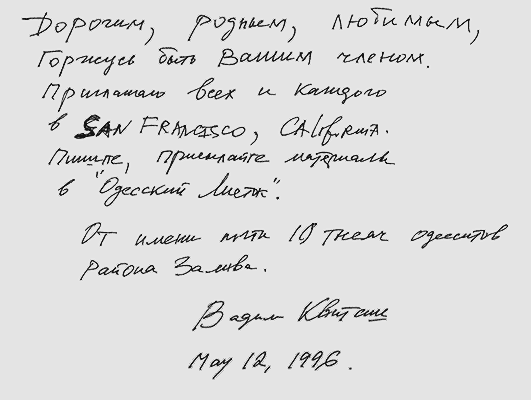 Дорогим, родным, любимым,
Горжусь быть Вашим членом.
Приглашаю всех и каждого
в SAN FRANCISCO, CALIFORNIA.
Пишите, присылайте материалы
в "Одесский Листок".
От имени почти 10 тысяч одесситов
района Залива.
Вадим
May 12, 1996.